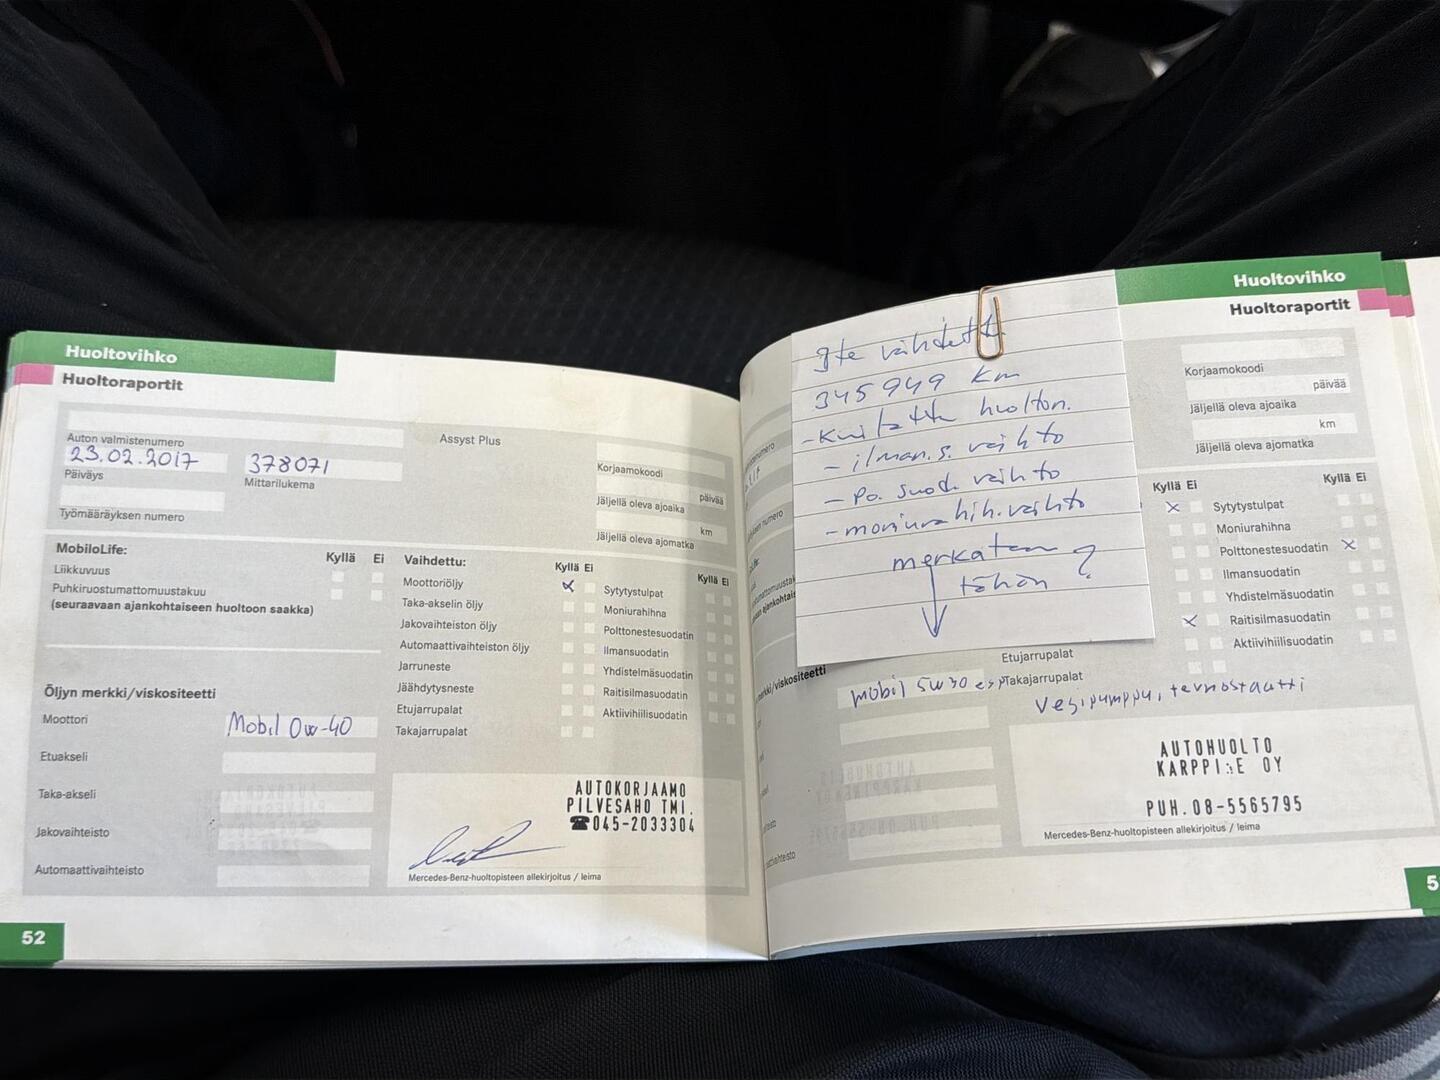 Huoltovihko
Huoltoraportit
Auton valmistenumero
Assyst Plus
23.02.2017
378071
Päiväys
Mittarilukema
Työmääräyksen numero
Korjaamokoodi
päivää
Jäljellä oleva ajoaika
km
Jäljellä oleva ajomatka
MobiloLife:
Kyllä Ei
Liikkuvuus
Puhkiruostumattomuustakuu
(seuraavaan ajankohtaiseen huoltoon saakka)
Vaihdettu:
Kyllä Ei
Kyllä Ei
Moottoriöljy
X
Sytytystulpat
Taka-akselin öljy
Moniurahihna
Jakovaihteiston öljy
Polttonestesuodatin
Automaattivaihteiston öljy
Ilmansuodatin
Jarruneste
Yhdistelmäsuodatin
Jäähdytysneste
Raitisilmasuodatin
Etujarrupalat
Aktiivihiilisuodatin
Takajarrupalat
Öljyn merkki/viskositeetti
Moottori
Mobil 0w-40
Etuakseli
Taka-akseli
Jakovaihteisto
Automaattivaihteisto
AUTOKORJAAMO
PILVESAHO TMI.
☎045-2033304
Mercedes-Benz-huoltopisteen allekirjoitus / leima
52
Huoltovihko
Huoltoraportit
Korjaamokoodi
päivää
Jäljellä oleva ajoaika
km
Jäljellä oleva ajomatka
345949 km
- ilman.s. vaihto
- po. suod. vaihto
- moniurahih. vaihto
merkataan
tähän ?
Kyllä Ei
Kyllä Ei
X
Sytytystulpat
Moniurahihna
Polttonestesuodatin X
Ilmansuodatin
Yhdistelmäsuodatin
X
Raitisilmasuodatin
Aktiivihiilisuodatin
Etujarrupalat
Takajarrupalat
merkki/viskositeetti
mobil 5w30 esp
Vesipumppu, termostaatti
AUTOHUOLTO
PUH.08-5565795
Mercedes-Benz-huoltopisteen allekirjoitus / leima